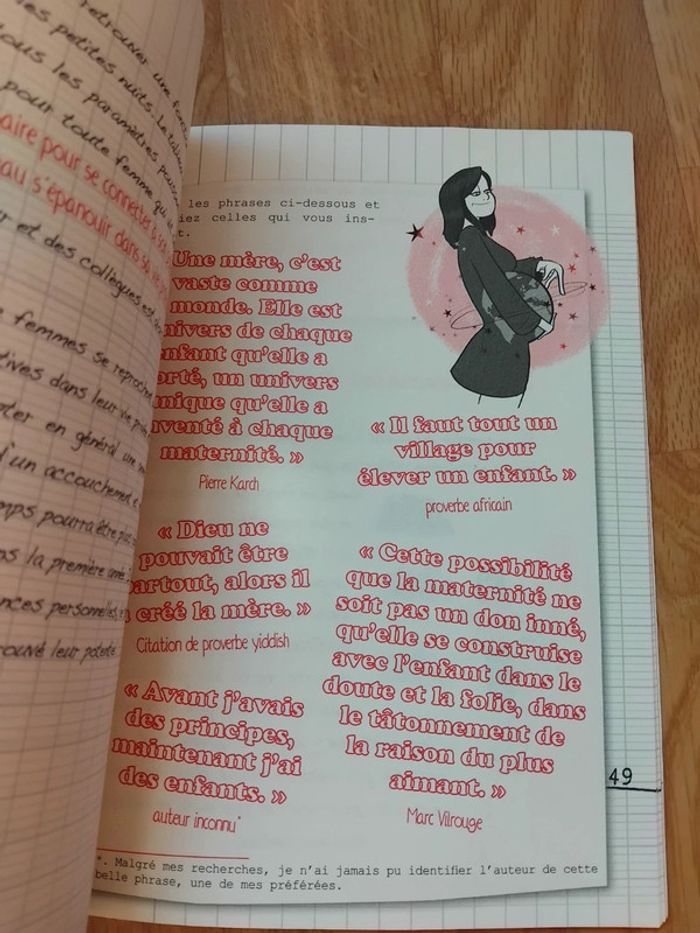 retrouver une
les petites nuits.
ous les paramètres
pour toute femme qui
aire pour se connecter à
au s'épanouir dans sa
r et des collègues est
femmes se reproche
tives dans leur vie
pter en général une
d'un accouchement
mps pourra être plus
ns la première année
nces personnelles,
rouvé leur
les phrases ci-dessous et
iez celles qui vous ins-
t.
Une mère, c'est
vaste comme
monde. Elle est
nivers de chaque
enfant qu'elle a
orté, un univers
unique qu'elle a
venté à chaque
maternité. »
Pierre Karch
« Il faut tout un
village pour
élever un enfant. »
proverbe africain
« Dieu ne
pouvait être
partout, alors il
a créé la mère. »
Citation de proverbe yiddish
« Cette possibilité
que la maternité ne
soit pas un don inné,
qu'elle se construise
avec l'enfant dans le
doute et la folie, dans
le tâtonnement de
la raison du plus
aimant. »
Marc Vilrouge
« Avant j'avais
des principes,
maintenant j'ai
des enfants. »
auteur inconnu*
*. Malgré mes recherches, je n'ai jamais pu identifier l'auteur de cette
belle phrase, une de mes préférées.
49